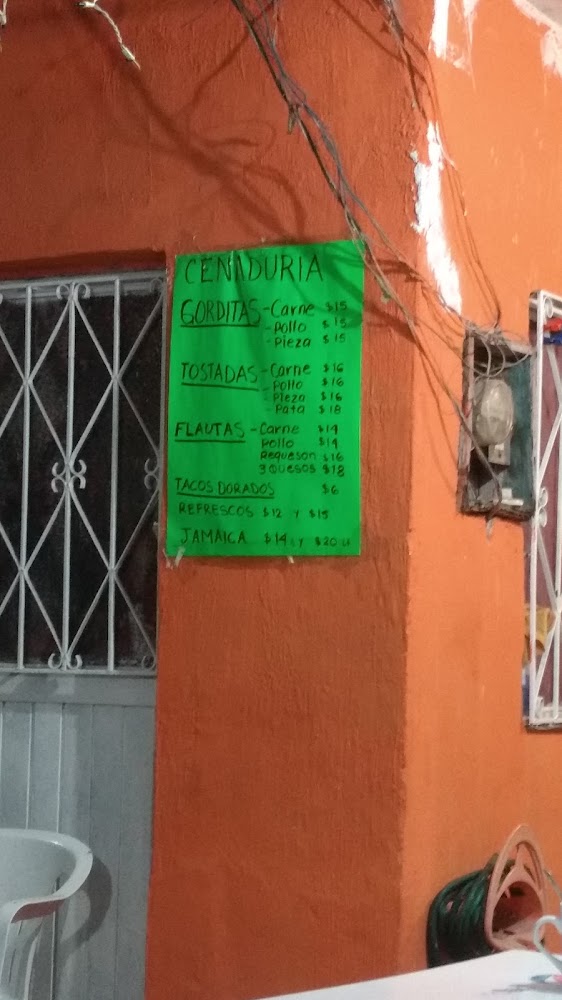 CENADURIA
GORDITAS - Carne $15
- Pollo $15
- Pieza $15
TOSTADAS - Carne $16
- Pollo $16
- Pieza $16
- Pata $18
FLAUTAS - Carne $14
Pollo $14
Requeson $16
3 QUESOS $18
TACOS DORADOS $6
REFRESCOS $12 Y $15
JAMAICA $14 Y $20